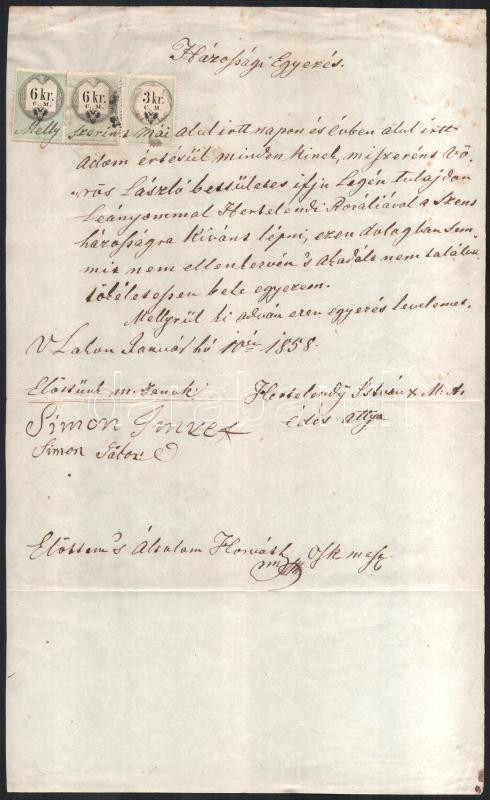 Házossági Egyezés.
6 kr. 6 kr. 3 kr.
C. M. C. M. C. M.
Melly Szerint mái alul irtt napon és évben alul irtt
adom értésül minden kinek, miszerént Vö-
rös László becsületes ifju Legén tulajdon
leányommal Hertelendi Rozáliával a Szent
házosságra Kiváns lépni, ezen dologban Sem-
mit nem ellentervén 's akadált nem találok
tökéletessen bele egyezem.
Mellyrűl ki adván ezen egyezés levelemet.
Lakon Januári hó 1858.
Előttünk m. Tanuk
Hertelendÿ István x
Simon Imre
édes attya
Simon Gábor
Előttem 's Általam Horváth
Osk mest
darabanth